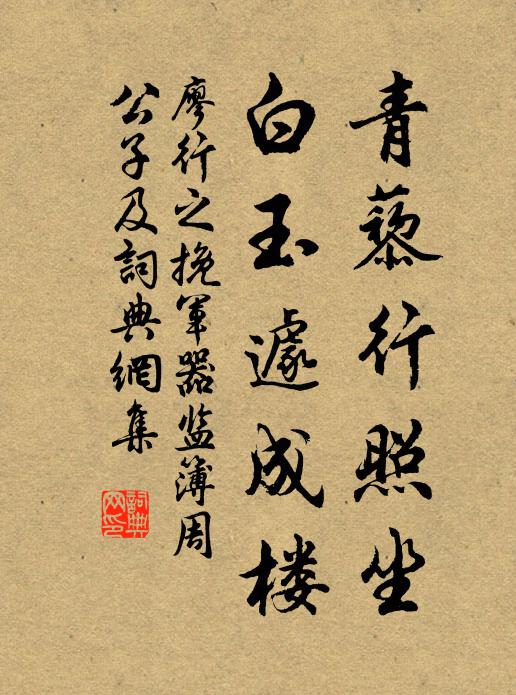 青藜行照坐
白玉遽成楼
廖行之挽军器监簿周
公子及詞典網集
詞典网印